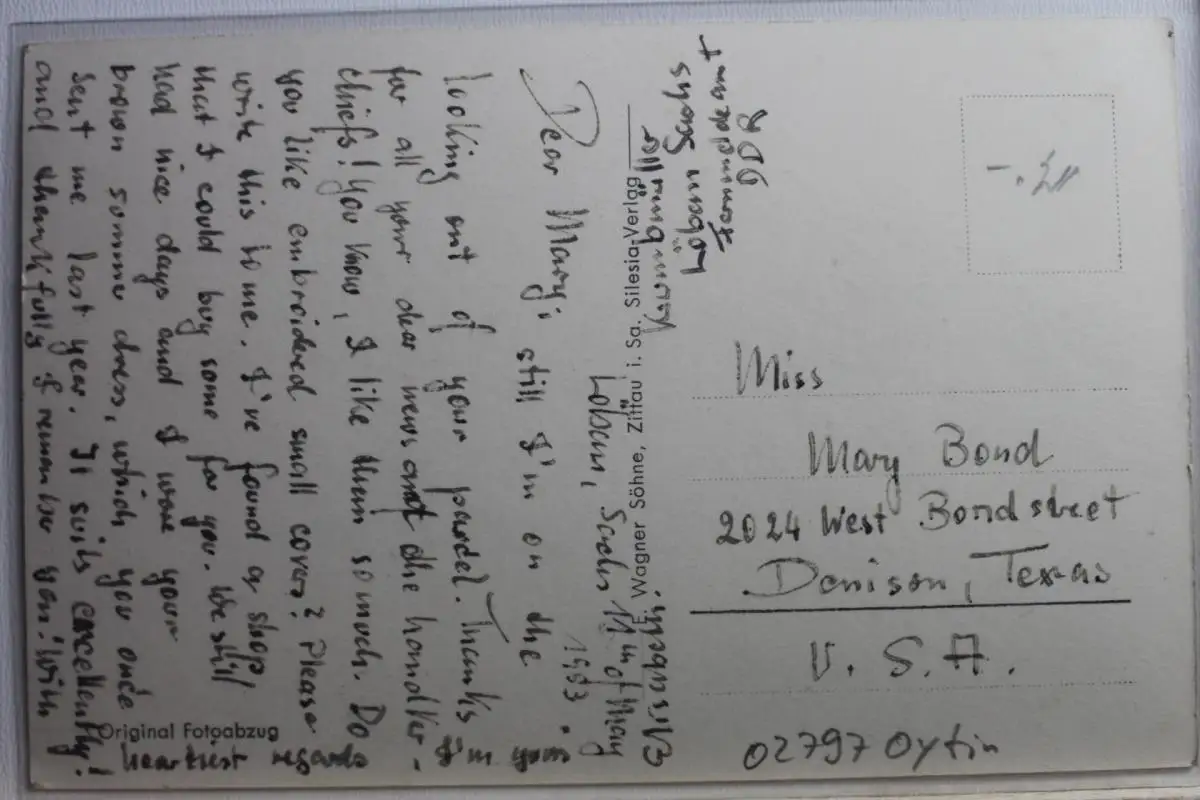 Löbau, Sachs 11th of May
1953.
Dear Mary, still I'm on the
looking out of your parcel. Thanks
for all your dear news and the handker-
chiefs! You know, I like them so much. Do
you like embroidered small covers? Please
write this to me. I've found a shop
that I could buy some for you. We still
had nice days and I wore your
brown summer dress, which you once
sent me last year. It suits excellently!
and thankfully I remember you! With
heartiest regards I'm yours
Löbau Sachs
Fernmeldeamt
DDR
E. Wagner Söhne, Zittau i. Sa. Silesia-Verlag
Original Fotoabzug
Miss
Mary Bond
2024 West Bondstreet
Denison, Texas
U. S. A.
02797 Oybin